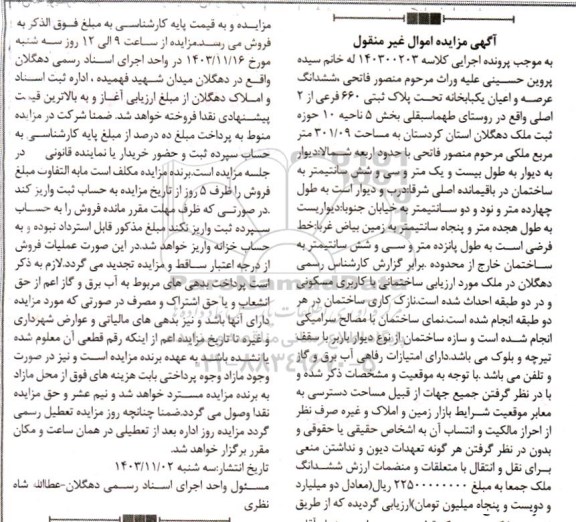 آگهی مزایده اموال غیر منقول
به موجب پرونده اجرایی کلاسه ۱۴۰۳۰۰۲۰۳ له خانم سیده
پروین حسینی علیه وراث مرحوم منصور فاتحی ،ششدانگ
عرصه و اعیان یکبابخانه تحت پلاک ثبتی ۶۶۰ فرعی از ۲
اصلی واقع در روستای طهماسبقلی بخش ۵ ناحیه ۱۰ حوزه
ثبت ملک دهگلان استان کردستان به مساحت ۳۰۱/۰۹ متر
مربع ملکی مرحوم منصور فاتحی با حدود اربعه شمالا:دیوار
به دیوار به طول بیست و یک متر و سی و شش سانتیمتر به
ساختمان در باقیمانده اصلی شرقا:درب و دیوار است به طول
چهارده متر و نود و دو سانتیمتر به خیابان جنوبا:دیواریست
به طول هجده متر و پنجاه سانتیمتر به زمین بیاض غربا:خط
فرضی است به طول پانزده متر و سی و شش سانتیمتر به
ساختمان خارج از محدوده .برابر گزارش کارشناس رسمی
دهگلان در ملک مورد ارزیابی ساختمانی با کاربری مسکونی
و در دو طبقه احداث شده است.نازک کاری ساختمان در هر
دو طبقه انجام شده است.نمای ساختمان با مصالح سرامیکی
انجام شده است و سازه ساختمان از نوع دیوار باربر با سقف
تیرچه و بلوک می باشد.دارای امتیازات رفاهی آب برق و گاز
و تلفن می باشد .با توجه به موقعیت و مشخصات ذکر شده و
با در نظر گرفتن جمیع جهات از قبیل مساحت دسترسی به
معابر موقعیت شرایط بازار زمین و املاک و غیره صرف نظر
از احراز مالکیت و انتساب آن به اشخاص حقیقی یا حقوقی و
بدون در نظر گرفتن هر گونه تعهدات دیون و نداشتن منعی
برای نقل و انتقال با متعلقات و منضمات ارزش ششدانگ
ملک جمعا به مبلغ ۲۲۵۰۰۰۰۰۰۰۰ ریال(معادل دو میلیارد
و دویست و پنجاه میلیون تومان)ارزیابی گردیده که از طریق
مزایده و به قیمت پایه کارشناسی به مبلغ فوق الذکر به
فروش می رسد.مزایده از ساعت ۹ الی ۱۲ روز سه شنبه
مورخ ۱۴۰۳/۱۱/۱۶ در واحد اجرای اسناد رسمی دهگلان
واقع در دهگلان میدان شهید فهمیده ، اداره ثبت اسناد
و املاک دهگلان از مبلغ ارزیابی آغاز و به بالاترین قیمت
پیشنهادی نقدا فروخته خواهد شد. ضمنا شرکت در مزایده
منوط به پرداخت مبلغ ده درصد از مبلغ پایه کارشناسی به
حساب سپرده ثبت و حضور خریدار یا نماینده قانونی در
جلسه مزایده است.برنده مزایده مکلف است مابه التفاوت مبلغ
فروش را ظرف ۵ روز از تاریخ مزایده به حساب ثبت واریز کند
.در صورتی که ظرف مهلت مقرر مانده فروش را به حساب
سپرده ثبت واریز نکند مبلغ مذکور قابل استرداد نبوده و به
حساب خزانه واریز خواهد شد.در این صورت عملیات فروش
از درجه اعتبار ساقط و مزایده تجدید می گردد.لازم به ذکر
است پرداخت بدهی های مربوط به آب برق و گاز اعم از حق
انشعاب و یا حق اشتراک و مصرف در صورتی که مورد مزایده
دارای آنها باشد و نیز بدهی های مالیاتی و عوارض شهرداری
و غیره تا تاریخ مزایده اعم از اینکه رقم قطعی آن معلوم شده
یا نشده باشد به عهده برنده مزایده است و نیز در صورت
وجود مازاد وجوه پرداختی بابت هزینه های فوق از محل مازاد
به برنده مزایده مسترد خواهد شد و نیم عشر و حق مزایده
نقدا وصول می گردد.ضمنا چنانچه روز مزایده تعطیل رسمی
گردد مزایده روز اداره بعد از تعطیلی در همان ساعت و مکان
مقرر برگزار خواهد شد.
تاریخ انتشار:سه شنبه ۱۴۰۳/۱۱/۰۲
مسئول واحد اجرای اسناد رسمی دهگلان-عطاالله شاه
نظری